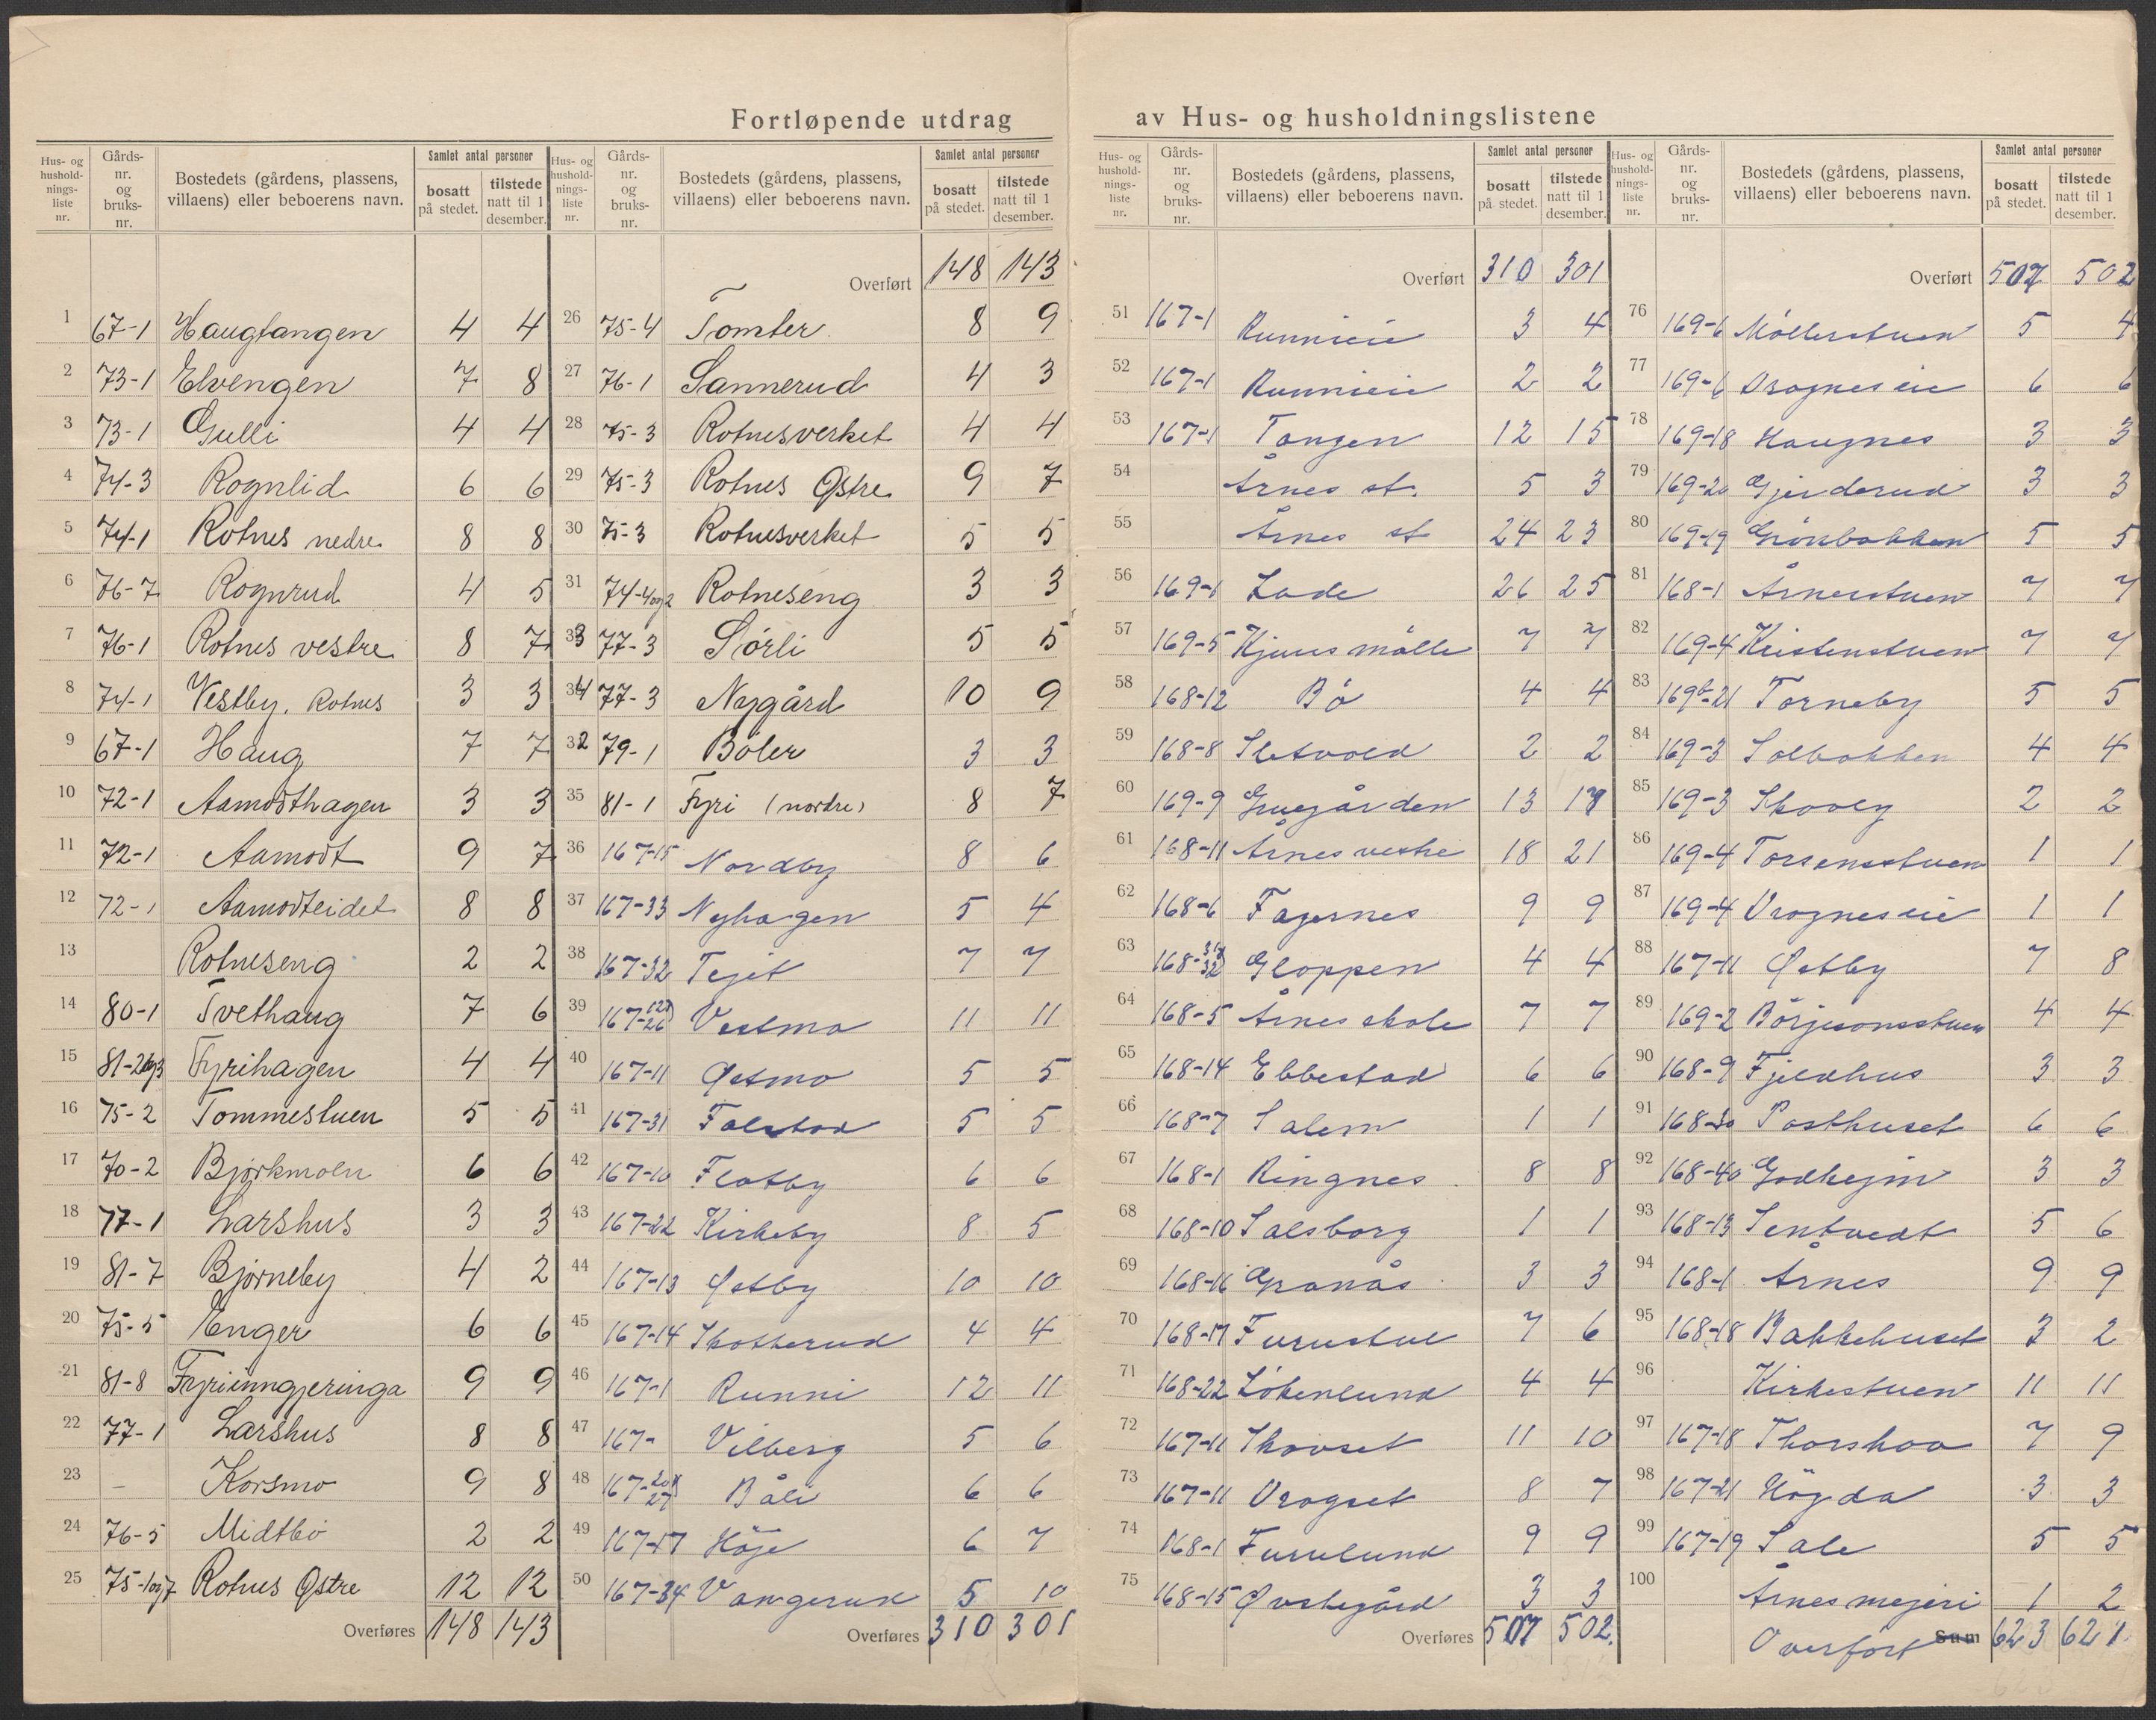 Fortløpende utdrag av Hus- og husholdningslistene
Hus- og husholdningsliste nr. | Gårdsnr. og bruksnr. | Bostedets (gårdens, plassens, villaens) eller beboerens navn. | Samlet antal personer | bosatt på stedet. | tilstede natt til 1 desember.
1 67-1 Haugtangen 4 4
2 73-1 Elvengen 7 8
3 73-1 Gulli 4 4
4 74-3 Rognlid 6 6
5 74-1 Rotnes nedre 8 8
6 76-7 Rognrud 4 5
7 76-1 Rotnes vestre 8 7
8 74-1 Vestby, Rotnes 3 3
9 67-1 Haug 7 7
10 72-1 Aamodthagen 3 3
11 72-1 Aamodt 9 7
12 72-1 Aamodteidet 8 8
13 Rotneseng 2 2
14 80-1 Tvethaug 7 6
15 81-2og3 Fyrihagen 4 4
16 75-2 Tommestuen 5 5
17 70-2 Bjørkmoen 6 6
18 77-1 Larshus 3 3
19 81-7 Bjørneby 4 2
20 75-5 Enger 6 6
21 81-8 Fyrienngjeringa 9 9
22 77-1 Larshus 8 8
23 – Korsmo 9 8
24 76-5 Midtbø 2 2
25 75-1og7 Rotnes Østre 12 12
Overføres 148 143
Hus- og husholdningsliste nr. | Gårdsnr. og bruksnr. | Bostedets (gårdens, plassens, villaens) eller beboerens navn. | Samlet antal personer | bosatt på stedet. | tilstede natt til 1 desember.
Overført 148 143
26 75-4 Tomter 8 9
27 76-1 Sannerud 4 3
28 75-3 Rotnesverket 4 4
29 75-3 Rotnes Østre 9 7
30 75-3 Rotnesverket 5 5
31 74-4og2 Rotneseng 3 3
33 77-3 Sörli 5 5
34 77-3 Nygård 10 9
32 79-1 Böler 3 3
35 81-1 Fyri (nordre) 8 7
36 167-15 Nordby 8 6
37 167-33 Nyhagen 5 4
38 167-32 Tejet 7 7
39 167-26 Vestmo 11 11
40 167-11 Østmo 5 5
41 167-31 Falstad 5 5
42 167-10 Flatby 6 6
43 167-22 Kirkeby 8 5
44 167-13 Østby 10 10
45 167-14 Skotterud 4 4
46 167-1 Runni 12 11
47 167- Vilberg 5 6
48 167-20 27 Båli 6 6
49 167-17 Höje 6 7
50 167-34 Vangerud 5 10
Overføres 310 301
Hus- og husholdningsliste nr. | Gårdsnr. og bruksnr. | Bostedets (gårdens, plassens, villaens) eller beboerens navn. | Samlet antal personer | bosatt på stedet. | tilstede natt til 1 desember.
Overført 310 301
51 167-1 Runnieie 3 4
52 167-1 Runnieie 2 2
53 167-1 Tangen 12 15
54 Årnes st. 5 3
55 Årnes st 24 23
56 169-1 Lade 26 25
57 169-5 Kjuus mölle 7 7
58 168-12 Bö 4 4
59 168-8 Sletvold 2 2
60 169-9 Gruegården 13
61 168-11 Årnes vestre 18 21
62 168-6 Fagernes 9 9
63 168-32 Gloppen 4 4
64 168-5 Årnes skole 7 7
65 168-14 Ebbestad 6 6
66 168-7 Salem 1 1
67 168-1 Ringnes 8 8
68 168-10 Salsborg 1 1
69 168-16 Granås 3 3
70 168-17 Furustul 7 6
71 168-22 Lökenlund 4 4
72 167-11 Skovset 11 10
73 167-11 Vragset 8 7
74 168-1 Furulund 9 9
75 168-15 Øvstegård 3 3
Overføres 507 502
Hus- og husholdningsliste nr. | Gårdsnr. og bruksnr. | Bostedets (gårdens, plassens, villaens) eller beboerens navn. | Samlet antal personer | bosatt på stedet. | tilstede natt til 1 desember.
Overført 507 502
76 169-6 Möllerstuen 5 4
77 169-6 Vragnes eie 6 6
78 169-18 Haugnes 3 3
79 169-20 Gjerderud 3 3
80 169-19 Grönbakken 5 5
81 168-1 Årnerstuen 7 7
82 169-4 Kristenstuen 7 7
83 169-21 Torneby 5 5
84 169-3 Solbakken 4 4
85 169-3 Skovly 2 2
86 169-4 Torsensstuen 1 1
87 169-4 Vragnes eie 1 1
88 167-11 Østby 7 8
89 169-2 Börjesonsstuen 4 4
90 168-9 Fjeldhus 3 3
91 168-30 Posthuset 6 6
92 168-40 Godhejm 3 3
93 168-13 Tentvedt 5 6
94 168-1 Årnes 9 9
95 168-18 Bakkehuset 3 2
96 Kirkestuen 11 11
97 167-18 Thorshov 7 9
98 167-21 Högda 3 3
99 167-19 Sole 5 5
100 Årnes mejeri 1 2
Overfört Sum 623 621